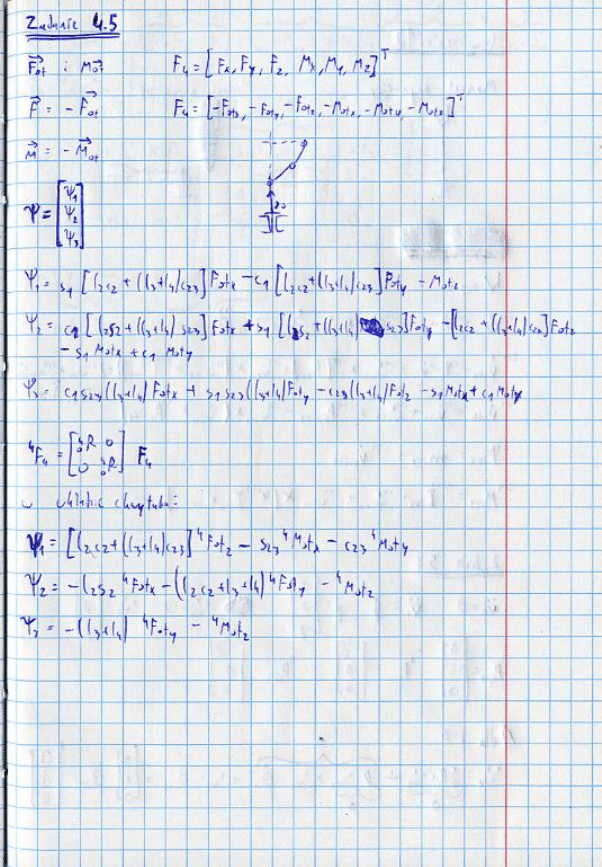 Zadanie 4.5
F⃗ot i M⃗ot F₄ = [Fx, Fy, Fz, Mx, My, Mz]ᵀ
F⃗ = -F⃗ot F₄ = [-Fotx, -Foty, -Fotz, -Motx, -Moty, -Motz]ᵀ
M⃗ = -M⃗ot
Ψ = [Ψ₁ Ψ₂ Ψ₃]
Ψ₁ = s₁ [l₂c₂ + (l₃+l₄)c₂₃] Fotx - c₁ [l₂c₂ + (l₃+l₄)c₂₃] Foty - Motz
Ψ₂ = c₁ [l₂s₂ + (l₃+l₄) s₂₃] Fotx + s₁ [l₂s₂ + (l₃+l₄) s₂₃] Foty - [l₂c₂ + (l₃+l₄)c₂₃] Fotz
- s₁ Motx + c₁ Moty
Ψ₃ = c₁s₂₃(l₃+l₄) Fotx + s₁s₂₃(l₃+l₄) Foty - c₂₃(l₃+l₄) Fotz - s₁Motx + c₁Moty
⁴F₄ = [⁴₀R 0 0 ⁴₀R] F₄
w układzie chwytaka:
Ψ₁ = [l₂c₂ + (l₃+l₄)c₂₃] ⁴Fotz - s₂₃ ⁴Motx - c₂₃ ⁴Moty
Ψ₂ = -l₂s₂ ⁴Fotx - (l₂c₂+l₃+l₄) ⁴Foty - ⁴Motz
Ψ₃ = -(l₃+l₄) ⁴Foty - ⁴Motz